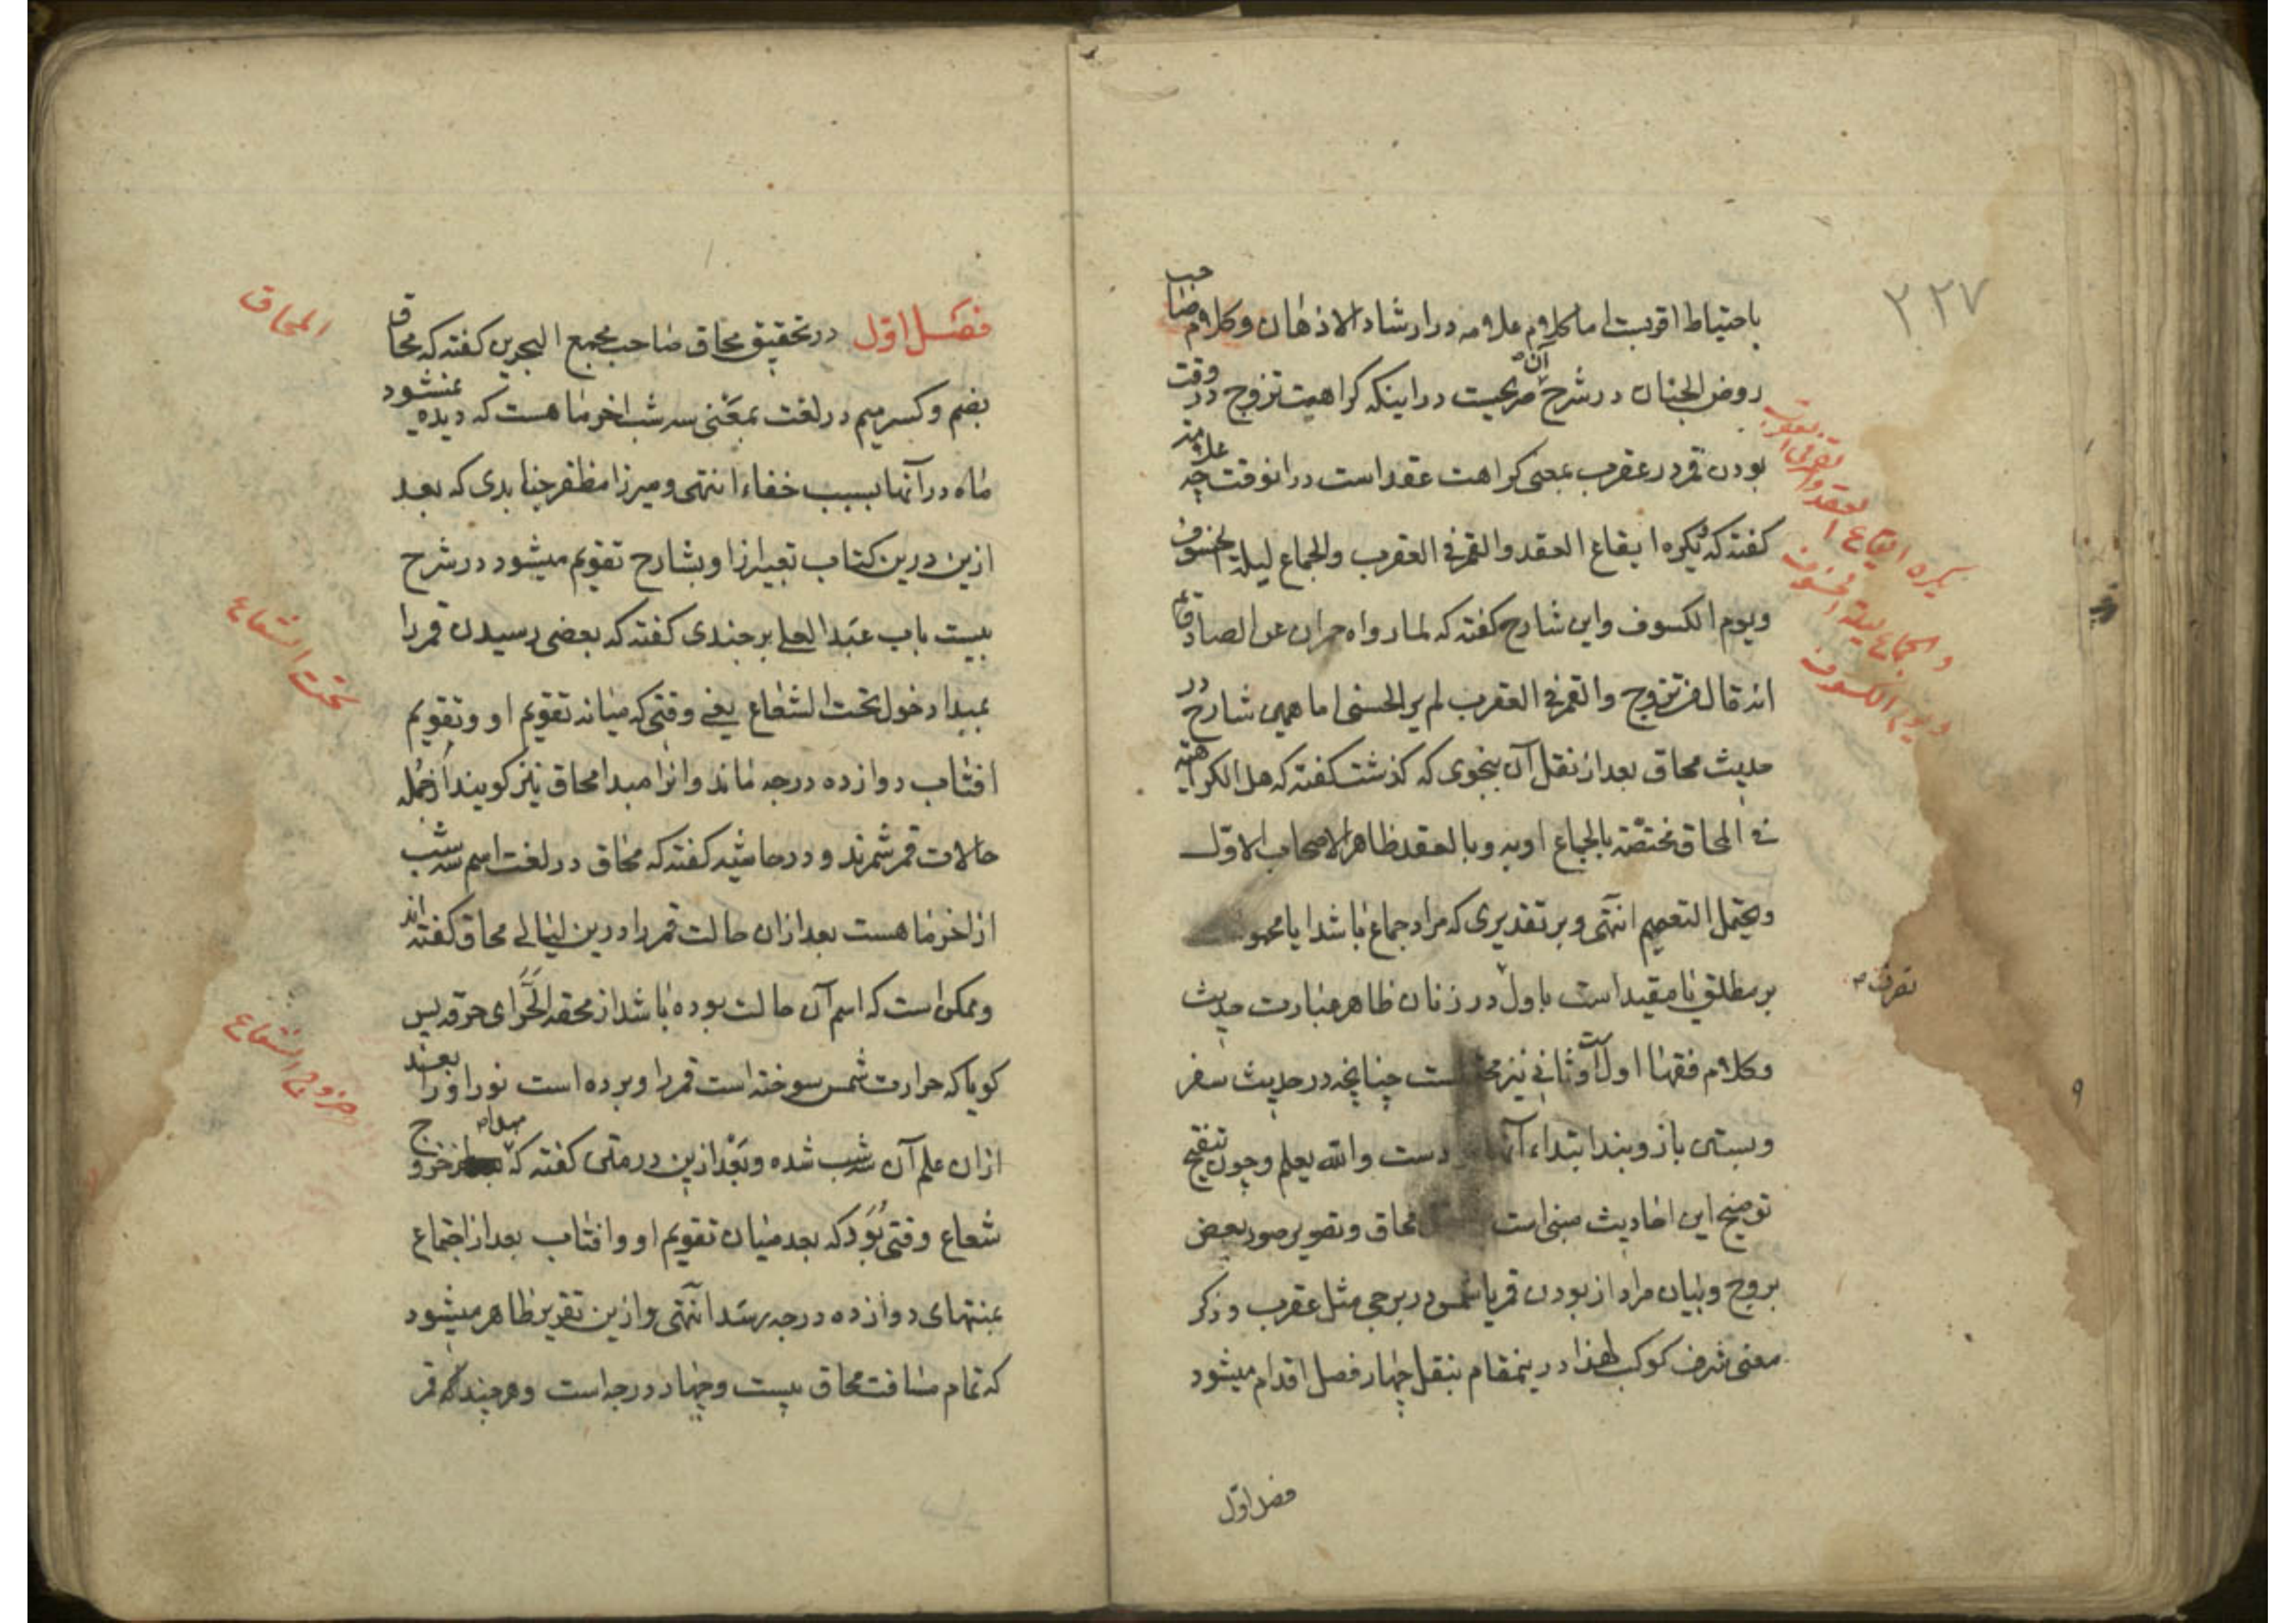 ۲۲۷
باحتیاط اقربست اما کلام علامه در ارشاد الاذهان و کلام صاحب
روض الجنان در شرح آن صریحست در اینکه کراهیت تزوج در وقت
بودن قمر در عقرب بمعنی کراهت عقد است در انوقت چه علامه
کفته که و یکره ایقاع العقد والقمر فی العقرب والجماع لیلة الخسوف
ویوم الکسوف واین شارح کفته که لما رواه حمران عن الصادق ع
انه قال من تزوج والقمر فی العقرب لم یر الحسنی اما همین شارح در
حدیث محاق بعد از نقل آن بنحوی که کذشت کفته که هل الکراهة
فی المحاق مختصّة بالجماع او به و بالعقد ظاهر الاصحاب الاوّل
ویحتمل التعمیم انتهی و بر تقدیری که مراد جماع باشد ایا محمو
بر مطلق یا مقید است باول در زنان ظاهر عبارت حدیث
وکلام فقها اول است و ثانی نیز چنانچه در حدیث سفر
وبستن بازوبند ابتداء دست والله یعلم وچون تنقیح
توضیح این احادیث مبنی است محاق وتصویر صور بعض
بروج و بیان مراد از بودن قمر یا شمس در برجی مثل عقرب و ذکر
معنی شرف کوکب لهذا درینمقام بنقل چهار فصل اقدام میشود
فصل اوّل
یکره ایقاع العقد والقمر فی العقرب
والجماع لیلة الخسوف
ویوم الکسوف
تصرفت
فصل اوّل در تحقیق محاق صاحب مجمع البحرین کفته که محاق
بضم وکسر میم در لغت بمعنی سه شب اخر ماهست که دیده نمیشود
ماه در آنها بسبب خفاء انتهی و میرزا مظفر جنابدی که بعد
ازین درین کتاب تعبیر از او بشارح تقویم میشود در شرح
بیست باب عبد العلی برجندی کفته که بعضی رسیدن قمر را
بمبدا دخول تحت الشعاع یعنی وقتی که میانه تقویم او وتقویم
افتاب دوازده درجه ماند وانرا مبدا محاق نیز کویند از جمله
حالات قمر شمرند و در حاشیه کفته که محاق در لغت اسم سه شب
از اخر ماهست بعد از ان حالت قمر را درین لیالی محاق کفته اند
وممکن است که اسم آن حالت بوده باشد از محقه الحَرّ ای حرقه پس
کویا که حرارت شمس سوخته است قمر را و برده است نور او را بعد
ازان علم آن سه شب شده و بعد ازین در متن کفته که مبداء خروج
شعاع وقتی بُوَد که بعد میان تقویم او و افتاب بعد از اجتماع
بمنتهای دوازده درجه رسد انتهی وازین تقریر ظاهر میشود
که تمام مسافت محاق بیست وچهار درجه است وهرچند که قمر
المحاق
تحت الشعاع
خروج الشعاع